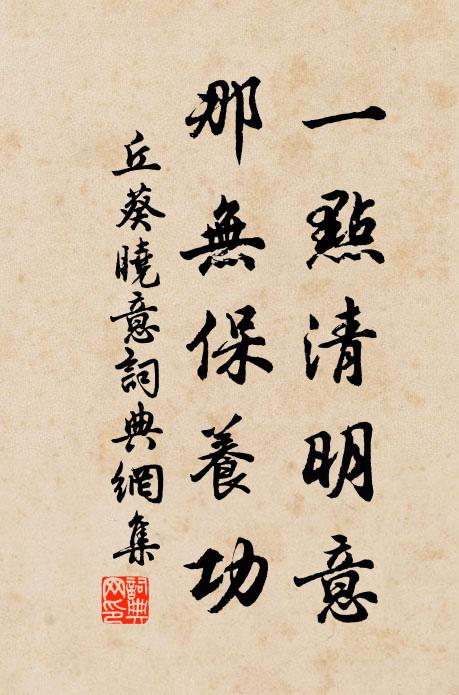 一點清明意
那無保養功
丘葵曉意詞典網集
詞典網印